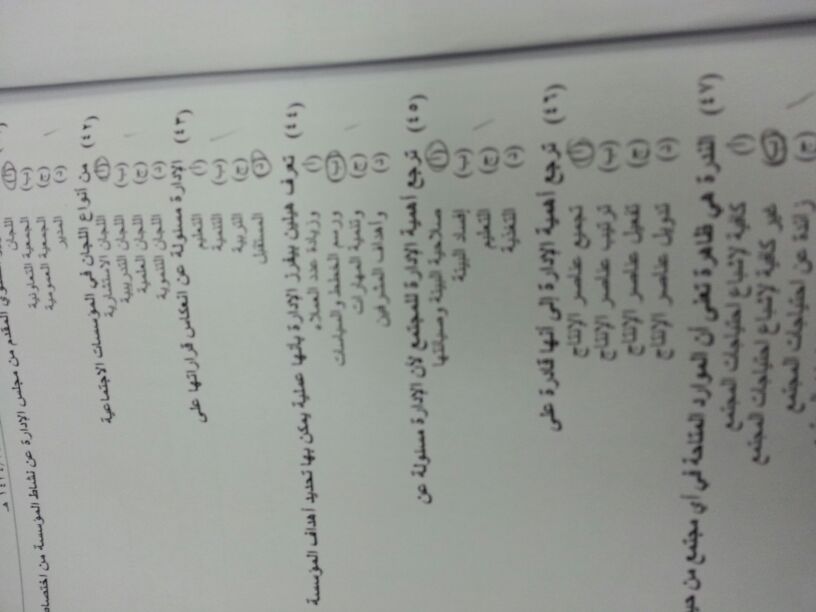 المقدم من مجلس الإدارة عن نشاط المؤسسة من اختصاص
(أ) اللجان
(ب) الجمعية التعاونية
(ج) الجمعية العمومية
(د) المدير
(٤٢) من أنواع اللجان في المؤسسات الاجتماعية
(أ) اللجان الاستشارية
(ب) اللجان التدريبية
(ج) اللجان العلمية
(د) اللجان التنموية
(٤٣) الإدارة مسئولة عن انعكاس قراراتها على
(أ) التعليم
(ب) التنمية
(ج) التربية
(د) المستقبل
(٤٤) تعرف هيلين بيفرز الإدارة بأنها عملية يمكن بها تحديد أهداف المؤسسة
(أ) وزيادة عدد العملاء
(ب) ورسم الخطط والسياسات
(ج) وتنمية المهارات
(د) وأهداف المشرفين
(٤٥) ترجع أهمية الإدارة للمجتمع لأن الإدارة مسئولة عن
(أ) صلاحية البيئة وصيانتها
(ب) إفساد البيئة
(ج) التعليم
(د) التغذية
(٤٦) ترجع أهمية الإدارة إلى أنها قادرة على
(أ) تجمع عناصر الإنتاج
(ب) ترتيب عناصر الإنتاج
(ج) تفعيل عناصر الإنتاج
(د) تمويل عناصر الإنتاج
(٤٧) الندرة هي ظاهرة تعنى أن الموارد المتاحة في أي مجتمع من
(أ) كافية لإشباع احتياجات المجتمع
(ب) غير كافية لإشباع احتياجات المجتمع
(ج) زائدة عن احتياجات المجتمع